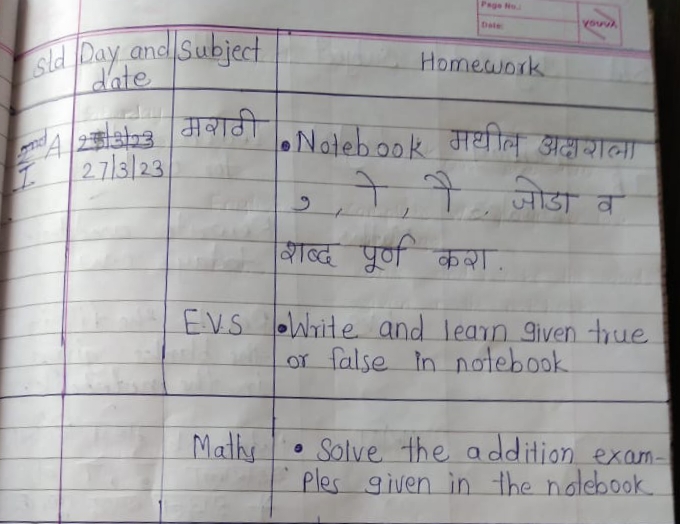 Page No.:
Date:
youva
Std Day and Subject Homework
date
2nd A 27/3/23 मराठी • Notebook मधील अक्षराला
I 27/3/23
, , े , ै . जोडा व
शब्द पूर्ण करा.
E.V.S • Write and learn given true
or false in notebook
Maths • Solve the addition exam-
ples given in the notebook